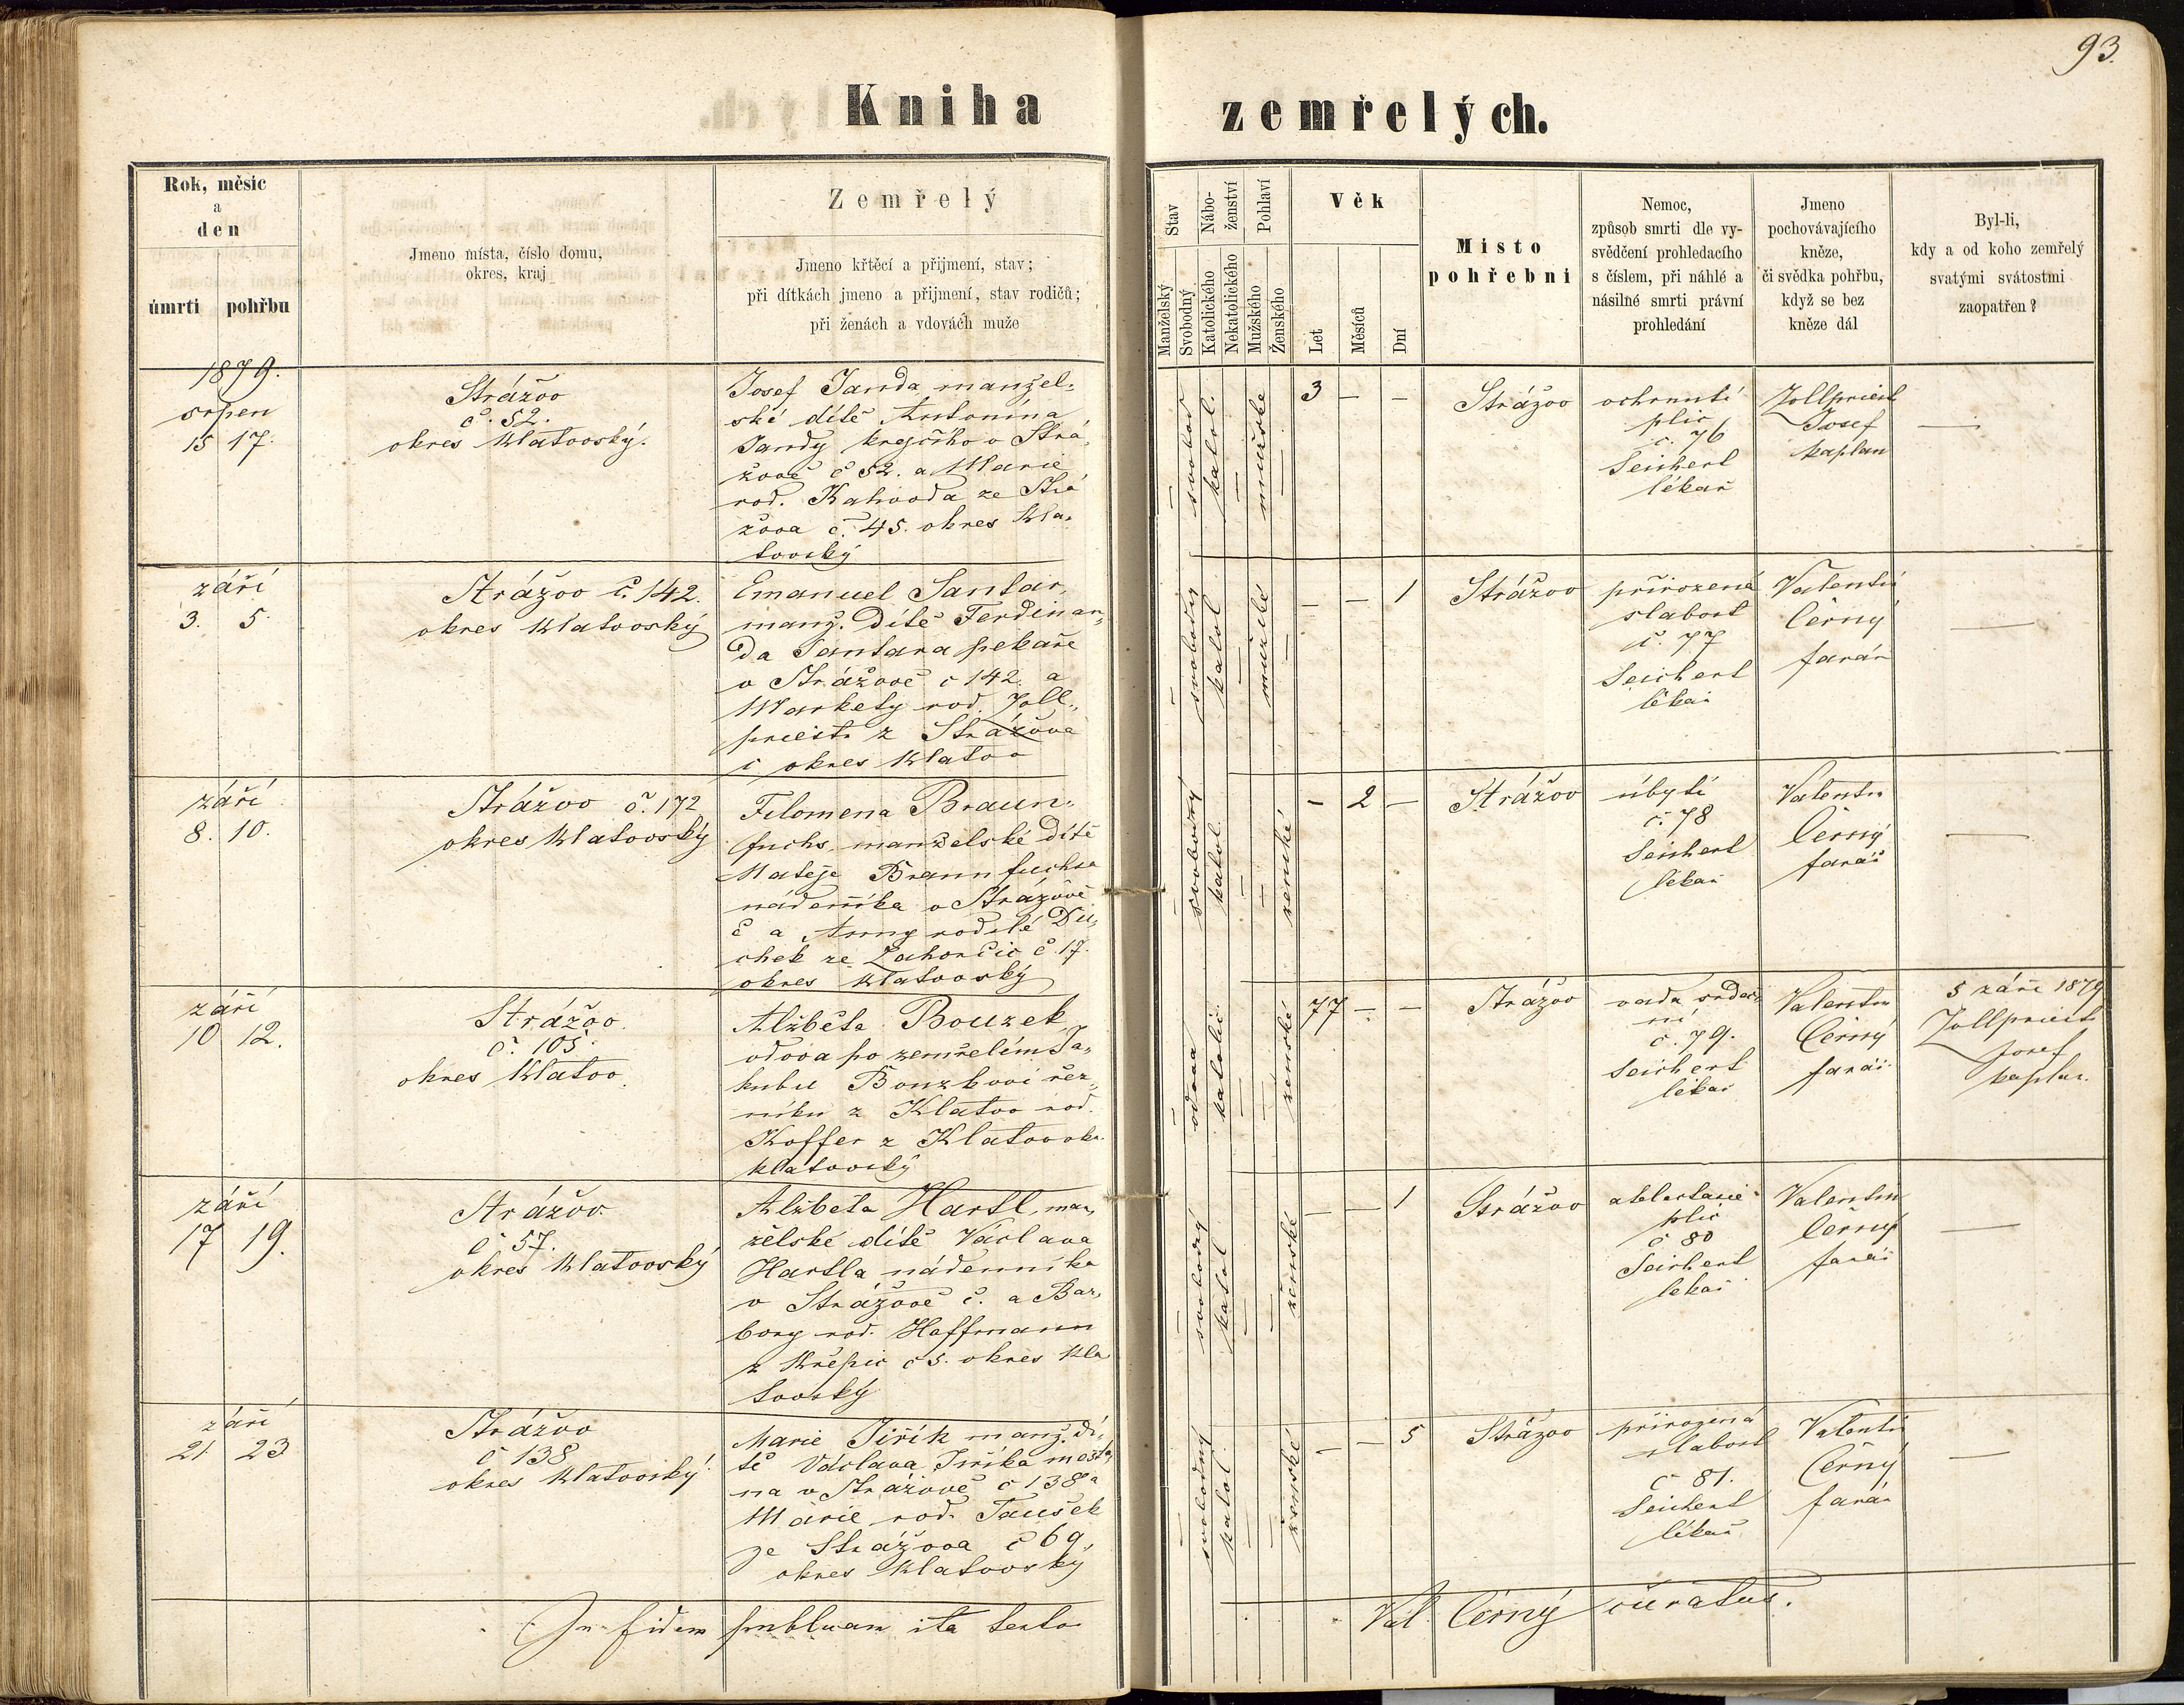 93.
Kniha zemřelých.
Rok, měsic
a
den
úmrtí pohřbu
Jmeno místa, číslo domu,
okres, kraj
Zemřelý
Jmeno křtěcí a přijmení, stav;
při dítkách jmeno a přijmení, stav rodičů;
při ženách a vdovách muže
Stav
Manželský
Svobodný
Nábo-
ženství
Katolického
Nekatolického
Pohlaví
Mužského
Ženského
Věk
Let
Měsíců
Dní
Misto
pohřebni
Nemoc,
způsob smrti dle vy-
svědčení prohledacího
s číslem, při náhlé a
násilné smrti právní
prohledání
Jmeno
pochovávajícího
kněze,
či svědka pohřbu,
když se bez
kněze dál
Byl-li,
kdy a od koho zemřelý
svatými svátostmi
zaopatřen?
1879.
srpen
15 17.
Strážov
č. 52.
okres Klatovský.
Josef Janda manžel-
ské dítě Antonína
Jandy krejčího v Strá-
žově č 52. a Marie
rod. Kahovda ze Strá
žova č. 45. okres Kla-
tovský
— svobod
katol. —
mužské —
3 — —
Strážov
ochrnutí
plic
č. 76
Seichert
lékař
Zollpriest
Josef
kaplan
—
září
3. 5.
Strážov č. 142.
okres Klatovský
Emanuel Santar,
manž. Dítě Ferdinan-
da Santara pekaře
v Strážově č 142. a
Markety rod. Zoll-
priest z Strážova
č okres Klatov
— svobodný
katol —
mužské —
— — 1
Strážov
přirozená
slabost
č. 77
Seichert
lékař
Valentin
Černý
farář
—
září
8. 10.
Strážov č. 172
okres Klatovský
Filomena Braun-
fuchs, manželské dítě
Mateje Braunfuchsa
nádenníka v Strážově
č a Anny rodilé Du-
chek ze Zahorčic č. 17.
okres Klatovský
— svobodný
katol. —
— ženské
— 2 —
Strážov
úbytí
č. 78
Seichert
lékař
Valentin
Černý
farář
—
září
10 12.
Strážov.
č. 105.
okres Klatov.
Alžběta Bouzek
vdova po zemřelém Ja-
kubu Bouzkovi řez-
níku z Klatov rod.
Koffer z Klatov okr.
klatovský
— vdova
katolic. —
— ženské
77 — —
Strážov
vada srdeč-
ní
č. 79.
Seichert
lékař
Valentin
Černý
farář
5 září 1879
Zollpriest
Josef
kaplan.
září
17 19.
Strážov
č 57.
okres Klatovský
Alžbeta Hartl, man-
želské dítě Václava
Hartla nádenníka
v Strážově č. a Bar-
bory rod. Hoffmann
z Křepic č 5. okres Kla
tovský
— svobodný
katol —
— ženské
— — 1
Strážov
atelectasie
plic
č 80
Seichert
lékař
Valentin
Černý
farář
—
září
21. 23
Strážov
č 138
okres Klatovský.
Marie Jiřík manž. dí-
tě Václava Jiříka mešťa-
na v Strážově č 138 a
Marie rod. Taušek
ze Strážova č 69,
okres Klatovský
— svobodný
katol. —
— ženské
— — 5
Strážov
přirozená
slabost
č 81.
Seichert
lékař
Valentin
Černý
farář
—
In fidem publicam ita testor
Val. Černý curatus.